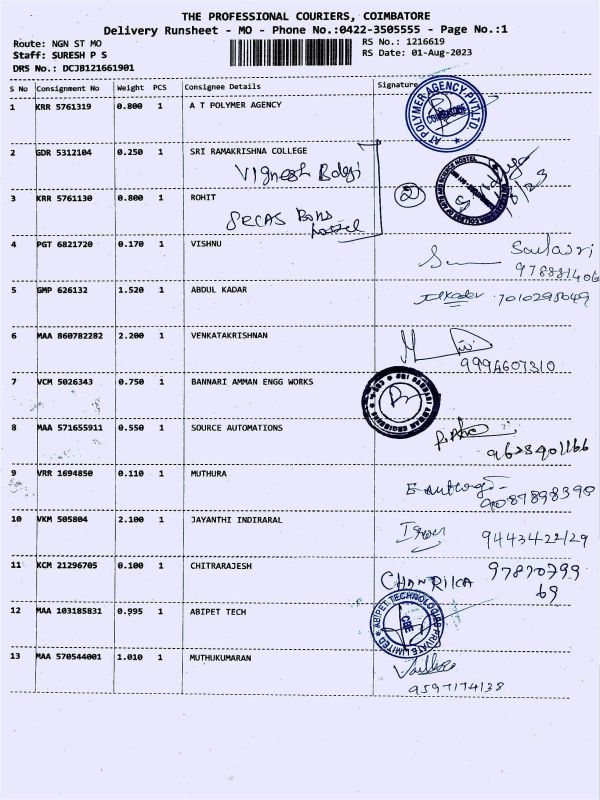 THE PROFESSIONAL COURIERS, COIMBATORE
Delivery Runsheet - MO - Phone No.:0422-3505555 - Page No.:1
Route: NGN ST MO RS No.: 1216619
Staff: SURESH P S RS Date: 01-Aug-2023
DRS No.: DCJB121661901
S No Consignment No Weight PCS Consignee Details Signature
1 KRR 5761319 0.800 1 A T POLYMER AGENCY
AT POLYMER AGENCY PVT.LTD.
COIMBATORE
2 GDR 5312104 0.250 1 SRI RAMAKRISHNA COLLEGE
Vignesh Balaji
3 KRR 5761130 0.800 1 ROHIT
2
SRCAS Boys
hostel
4 PGT 6821720 0.170 1 VISHNU
5 GMP 626132 1.520 1 ABDUL KADAR
7010295049
6 MAA 860782282 2.200 1 VENKATAKRISHNAN
9994607310
7 VCM 5026343 0.750 1 BANNARI AMMAN ENGG WORKS
8 MAA 571655911 0.550 1 SOURCE AUTOMATIONS
9 VRR 1694850 0.110 1 MUTHURA
9087898390
10 VKM 505804 2.100 1 JAYANTHI INDIRARAL
9443422129
11 KCM 21296705 0.100 1 CHITRARAJESH
CHANRIKA 97870799
69
12 MAA 103185831 0.995 1 ABIPET TECH
ABIPET TECHNOLOGIES PRIVATE LIMITED
CBE
13 MAA 570544001 1.010 1 MUTHUKUMARAN
9597174138